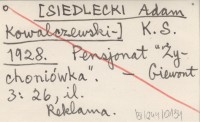 [SIEDLECKI Adam
Kowalczewski-] K.S.
1928. Pensjonat "Ży-
choniówka". – Giewont
3: 26, il.
Reklama.